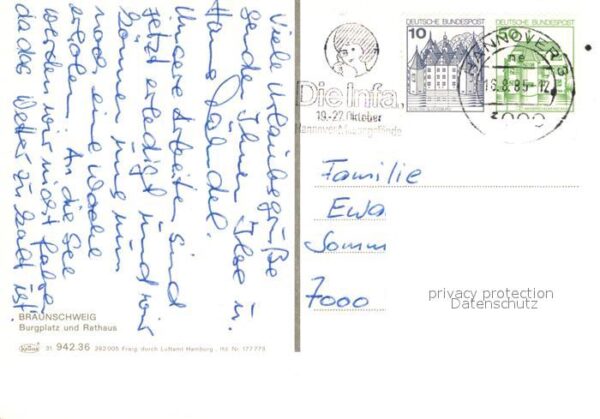 Viele Urlaubsgrüße
senden Ihnen Ilse u.
Hans
Unsere Arbeiten sind
jetzt erledigt und wir
können uns nun
noch eine Woche
erholen. An die See
werden wir nicht fahren
da das Wetter zu kalt ist.
BRAUNSCHWEIG
Burgplatz und Rathaus
Krüger 31. 942.36 292005 Freig. durch Luftamt Hamburg, Hd. Nr. 177779
Die Infa.
19.-27. Oktober
Hannover Messegelände
10 DEUTSCHE BUNDESPOST
DEUTSCHE BUNDESPOST
HANNOVER 3
ne
16.8.85-12
3000
Familie
Ewa
Somm
7000
privacy protection
Datenschutz